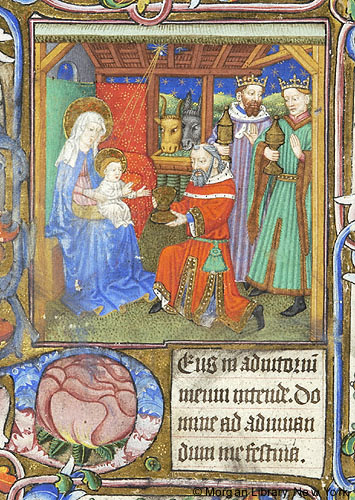 Eus in adiutoriū
meum intende. Do
mine ad adiuuan
dum me festina.
© Morgan Library, New York